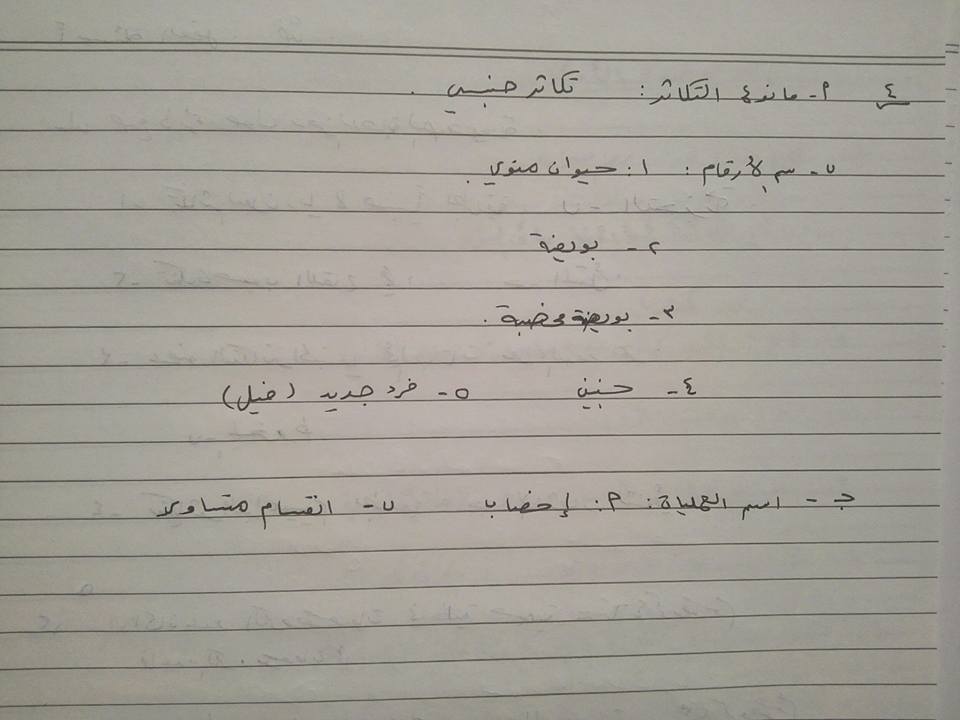 ٤ م- ما نوع التكاثر: تكاثر جنسي.
ب- سم الأرقام: ١: حيوان منوي.
٢- بويضة
٣- بويضة مخصبة.
٤- جنين ٥- فرد جديد (فيل)
ج- اسم العملية: م: إخصاب ب- انقسام متساوي